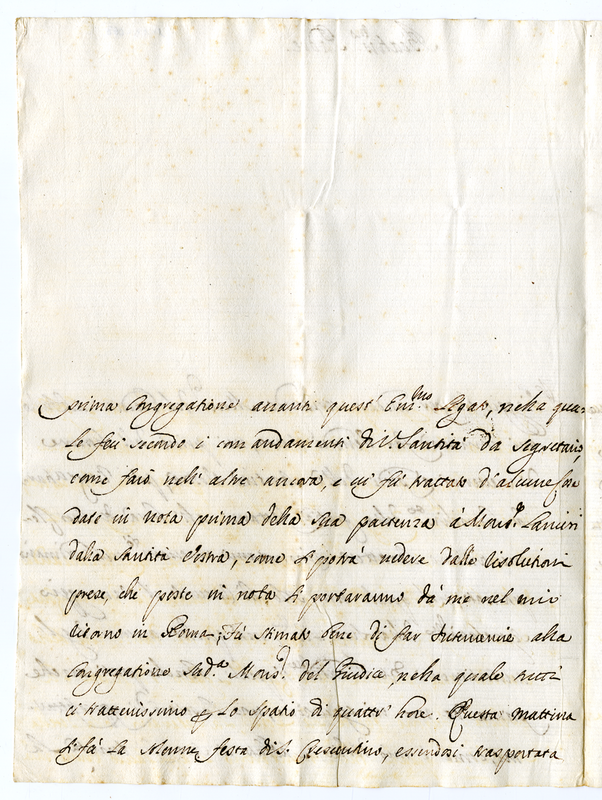 prima Congregatione auanti quest' Em.mo Legato, nella qua=
le feci secondo i comandamenti di V. Santità da segretario,
come farò nell' altre ancora, e ui fù trattato d'alcune cose
date in nota prima della sua partenza à Mons.r Lanieri
dalla Santità Vostra, come si potrà uedere dalle risolutioni
prese, che poste in nota si portaranno da me nel mio
ritorno in Roma; fù stimato bene di far interuenire alla
Congregatione sud.a Mons.r del Giudice, nella quale tutti
ci trattenissimo per lo spatio di quattr' hore. Questa mattina
si fà la solenne festa di S. Crescentino, essendosi trasportata